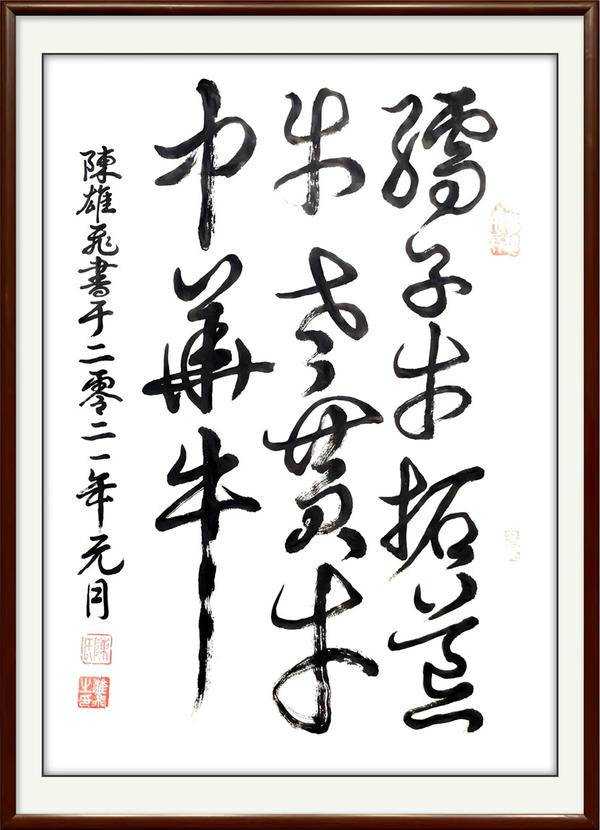 孺子牛拓荒
牛老黄牛
中華牛
陳雄飛書于二零二一年元月